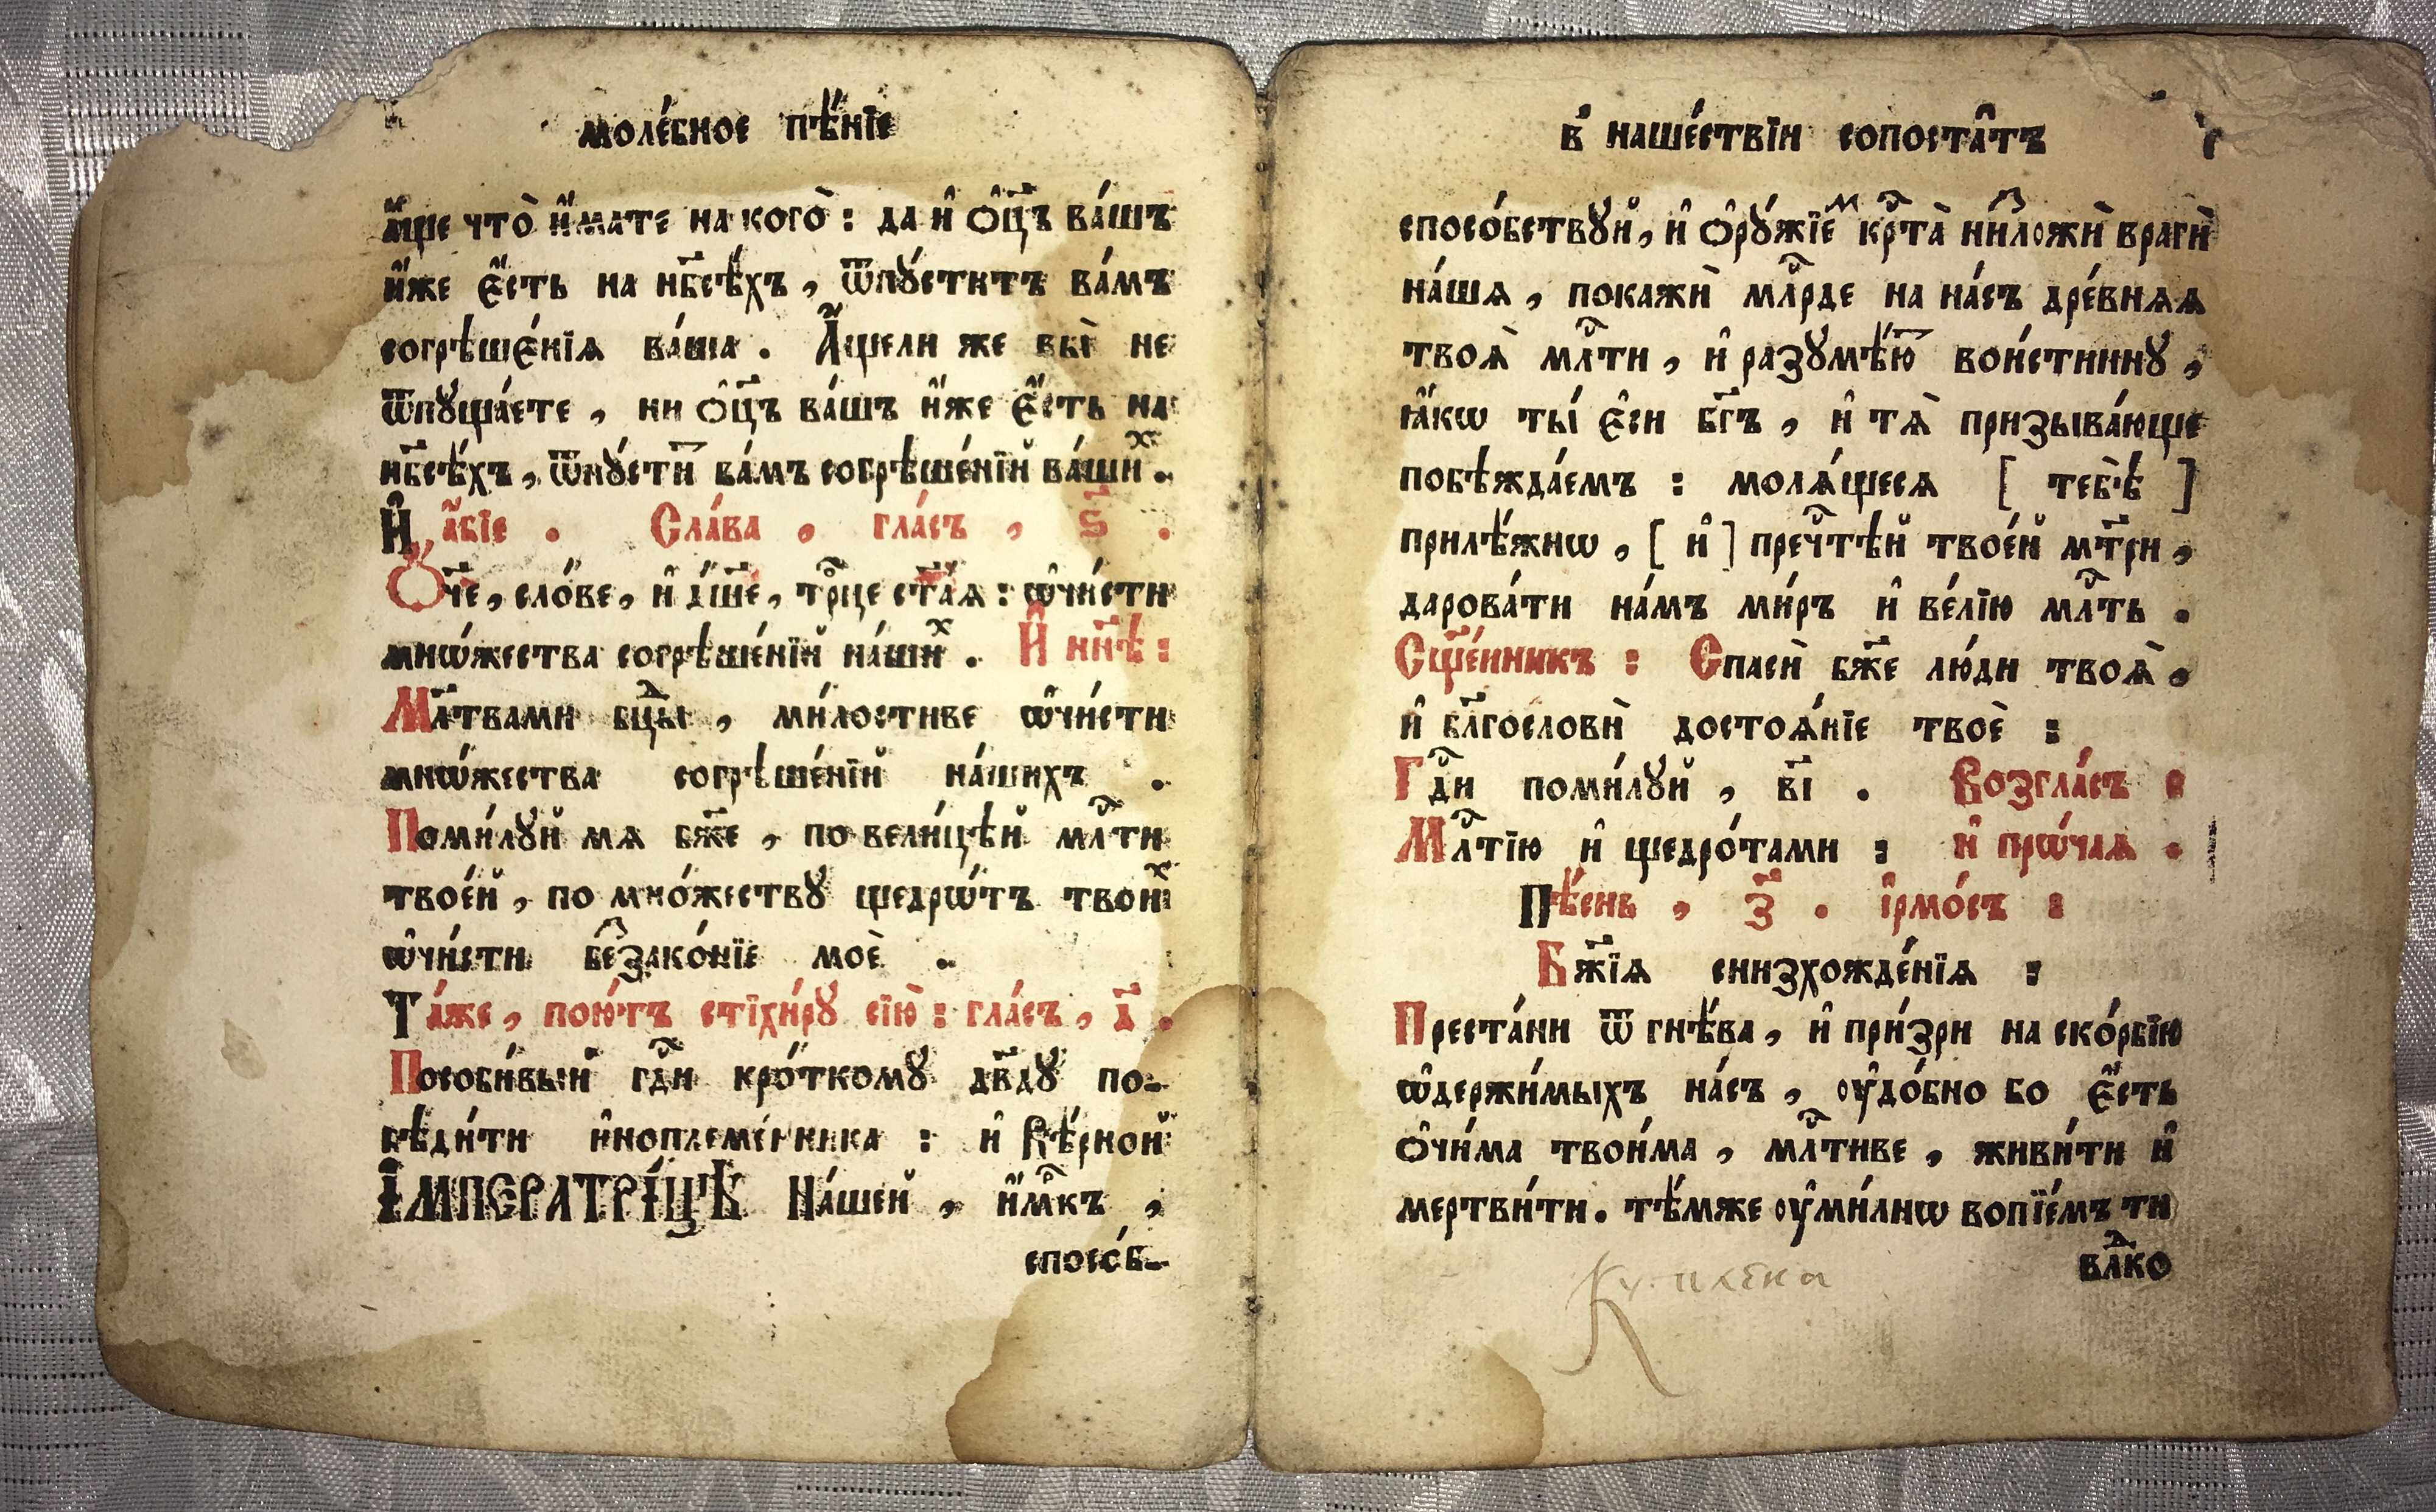 моле́бное пѣ́нїе
а҆́ще что̀ и҆́мате на кого̀ : да и҆ ѻ҆ц҃ъ ва́шъ
и҆́же є҆́сть на нб҃сѣ́хъ , ѿпꙋ́ститъ ва́мъ
согрѣше́нїѧ ва́ша . А҆́щели же вы̀ не
ѿпꙋща́ете , ни ѻ҆ц҃ъ ва́шъ и҆́же є҆́сть на
нб҃сѣ́хъ , ѿпꙋ́сти́ ва́мъ согрѣше́нїй ва́шиⷯ .
И҆ а҆́бїе . Сла́ва , гла́съ , ѕ҃ .
Ѻ҆́ч҃е , сло́ве , и҆ дш҃е , трⷪ҇це ст҃а́ѧ : ѡ҆чи́сти
мнѡ́жества согрѣше́нїй на́шиⷯ . И҆ нн҃ѣ :
Мл҃твами бцⷣы , ми́лостиве ѡ҆чи́сти
мнѡ́жества согрѣше́нїй на́шихъ .
Поми́лꙋй мѧ бж҃е , по вели́цѣй млⷭ҇ти
твое́й , по мно́жествꙋ щедрѡ́тъ твоиⷯ
ѡ҆чи́сти беⷥзако́нїе моѐ .
Та́же , пою́тъ стїхи́рꙋ сїю̀ : гла́съ , д҃ .
Пособи́вый гдⷭ҇и кро́ткомꙋ дв҃дꙋ по-
бѣди́ти и҆ноплеме́нника : и҆ вѣ́рной
І҆МПЕРАТРІ́ЦѢ На́шей , и҆́м҃къ ,
спосо́б-
в̾ наше́ствїи сопоста̑тъ
спосо́бствꙋй , и҆ ѻ҆рꙋ́жїеⷨ крⷭ҇та̀ ниⷥложѝ врагѝ
на́шѧ , покажѝ млⷭ҇рде на на́съ дре́внѧѧ
твоѧ̀ млⷭ҇ти , и҆ разꙋмѣ́ю҃ вои́стиннꙋ ,
ꙗ҆́кѡ ты́ є҆сѝ бг҃ъ , и҆ тѧ̀ призыва́юще
побѣжда́емъ : молѧ́щесѧ [ тебѣ̀ ]
прилѣ́жнѡ , [ и҆ ] пречⷭ҇тѣй твое́й мт҃ри ,
дарова́ти на́мъ ми́ръ и҆ ве́лїю млⷭ҇ть .
Сщ҃е́нникъ : Спасѝ бж҃е лю́ди твоѧ̀ ,
и҆ бл҃гословѝ достоѧ́нїе твоѐ :
Гдⷭ҇и поми́лꙋй , в҃і . Возгла́съ :
Млⷭ҇тїю и҆ щедро́тами : и҆ прѡ́чаѧ .
Пѣ́снь , з҃ . і҆рмо́съ :
Бж҃їѧ снизхожде́нїѧ :
Преста́ни ѿ гнѣ́ва , и҆ при́зри на ско́рбїю
ѡ҆держи́мыхъ на́съ , ᲂу҆до́бно бо є҆́сть
ѻ҆чи́ма твои́ма , млⷭ҇тиве , живи́ти и҆
мертви́ти . тѣ́мже ᲂу҆ми́лнѡ вопїе́мъ ти
влⷣко